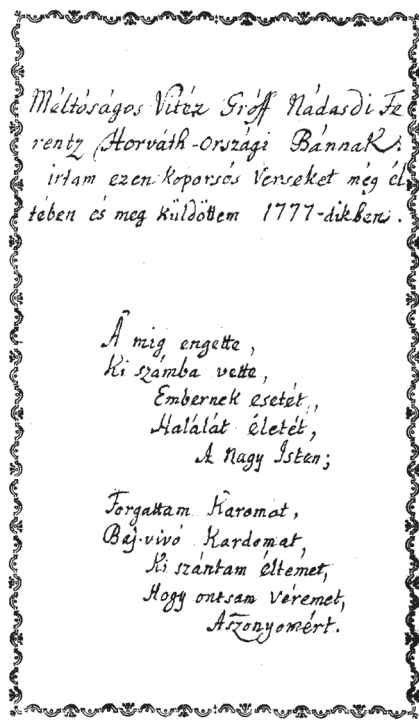 Méltóságos Vitéz Gróff Nádasdi Fe
rentz Horváth-Országi BánnaK:
irtam ezen Koporsós Verseket még él
tében és meg Küldöttem 1777-dikben.
A mig engette,
Ki számba vette,
Embernek esetét,
Halálát életét,
A Nagy Isten;
Forgattam Karomat,
Baj-vivó Kardomat,
Ki szántam éltemet,
Hogy ontsam véremet,
Aszonyomért.